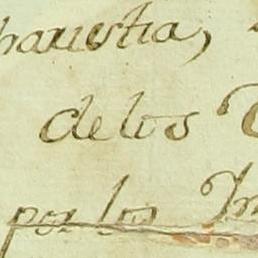 haristia,
delos
por los